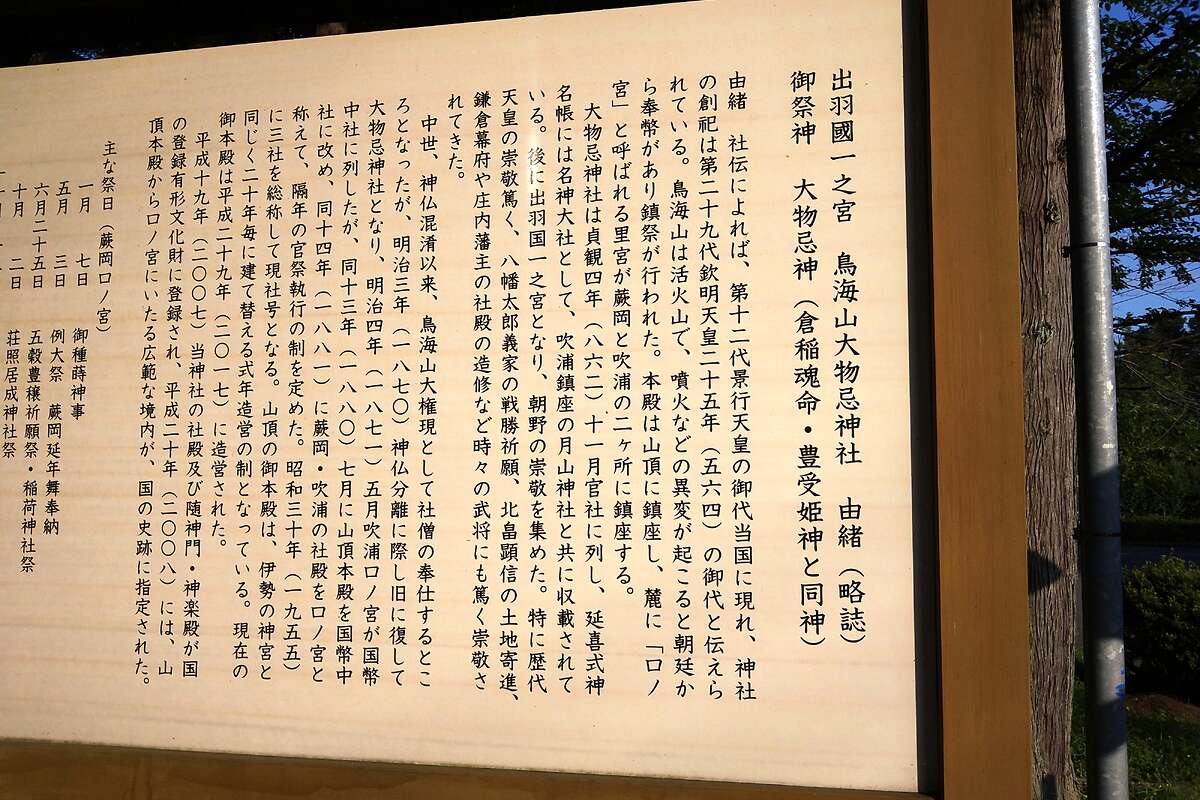 出羽國一之宮　鳥海山大物忌神社　由緒（略誌）
御祭神　大物忌神（倉稲魂命・豊受姫神と同神）
由緒　社伝によれば、第十二代景行天皇の御代当国に現れ、神社
の創祀は第二十九代欽明天皇二十五年（五六四）の御代と伝えら
れている。鳥海山は活火山で、噴火などの異変が起こると朝廷か
ら奉幣があり鎮祭が行われた。本殿は山頂に鎮座し、麓に「口ノ
宮」と呼ばれる里宮が蕨岡と吹浦の二ヶ所に鎮座する。
大物忌神社は貞観四年（八六二）十一月官社に列し、延喜式神
名帳には名神大社として、吹浦鎮座の月山神社と共に収載されて
いる。後に出羽国一之宮となり、朝野の崇敬を集めた。特に歴代
天皇の崇敬篤く、八幡太郎義家の戦勝祈願、北畠顕信の土地寄進、
鎌倉幕府や庄内藩主の社殿の造修など時々の武将にも篤く崇敬さ
れてきた。
中世、神仏混淆以来、鳥海山大権現として社僧の奉仕するとこ
ろとなったが、明治三年（一八七〇）神仏分離に際し旧に復して
大物忌神社となり、明治四年（一八七一）五月吹浦口ノ宮が国幣
中社に列したが、同十三年（一八八〇）七月に山頂本殿を国幣中
社に改め、同十四年（一八八一）に蕨岡・吹浦の社殿を口ノ宮と
称えて、隔年の官祭執行の制を定めた。昭和三十年（一九五五）
に三社を総称して現社号となる。山頂の御本殿は、伊勢の神宮と
同じく二十年毎に建て替える式年造営の制となっている。現在の
御本殿は平成二十九年（二〇一七）に造営された。
平成十九年（二〇〇七）当神社の社殿及び随神門・神楽殿が国
の登録有形文化財に登録され、平成二十年（二〇〇八）には、山
頂本殿から口ノ宮にいたる広範な境内が、国の史跡に指定された。
主な祭日（蕨岡口ノ宮）
一月　七日　御種蒔神事
五月　三日　例大祭　蕨岡延年舞奉納
六月二十五日　五穀豊穣祈願祭・稲荷神社祭
十月　二日　荘照居成神社祭